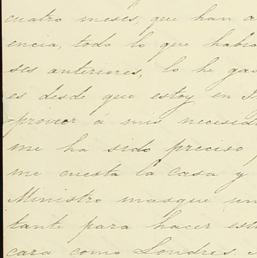 cuatro meses, que han a
encia, todo lo que habia
ses anteriores, lo he gas
es desde que estoy en I
proveer á mis necesida
me ha sido preciso
me cuesta la casa y
Ministro masque un
tante para hacer est
cara como Londres